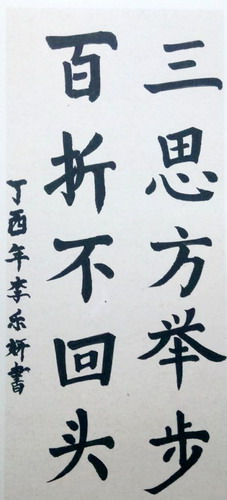 三思方举步
百折不回头
丁酉年李乐妍书